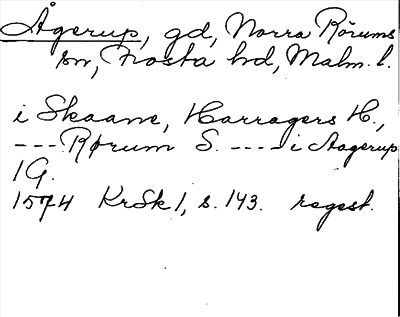 Ågerup, gd, Norra Rörums
sn, Frosta hd, Malm. l.
i Skaane, Harragers H.,
--- Rørum S. ---- i Aagerup
1 G.
1574 KrSk 1, s. 143. regest.